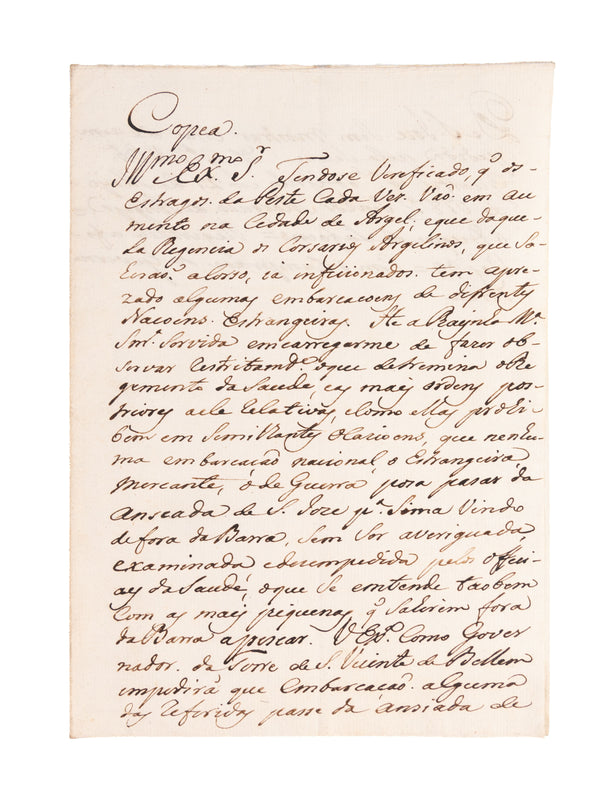 Copea.
Illmo. Exmo. Sr. Tendose Verificado, q̃ os
Estragos. da Peste Cada Vez. Vão. em au
mento na Cedade de Argel; eque daque-
la Regencia os Corsarios Argelinos, que Sa-
hirão. a Corso, já inficionados. tem apre-
zado algumas embarcacoens de difrentes
Nacoens. Estrangeiras. He a Raynha Ma.
Snrª. Servida emcarregarme de fazer ob-
servar restritamde. oque detremina o Re-
gemento da Saude, e as mais ordens pos-
triores a ele relativas, como ellas prohi-
bem em Semilhantes Ocazioens, que nenhu-
ma embarcacão nacional, o Estrangeira
Mercante, ó de Guerra, posa pasar da
Anseada de S. Joze pª. Sima Vindo
de fora da Barra, Sem Ser averiguada,
examinada e dezempedida pelos officí-
aes da Saude, oque Se emtende taobem
Com as mais piquenas, q̃ Sahirem fora
da Barra apescar. V. Exª. Como Gover
nador. da Torre de S. Vicente de Bellem
impedirá que Embarcacão. alguma
das referidas passe da ansiada de